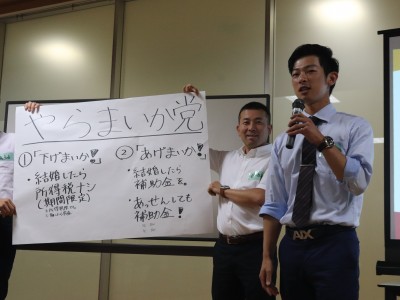 やらまいか党
①「下げまいか!」
・結婚したら
所得税ナシ
(期間限定)
②「あげまいか!」
・結婚したら
補助金を。
・あっせんしても
補助金!